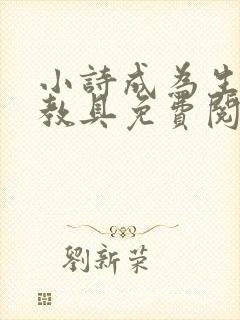 小詩成為生
教具免費閱
劉新荣